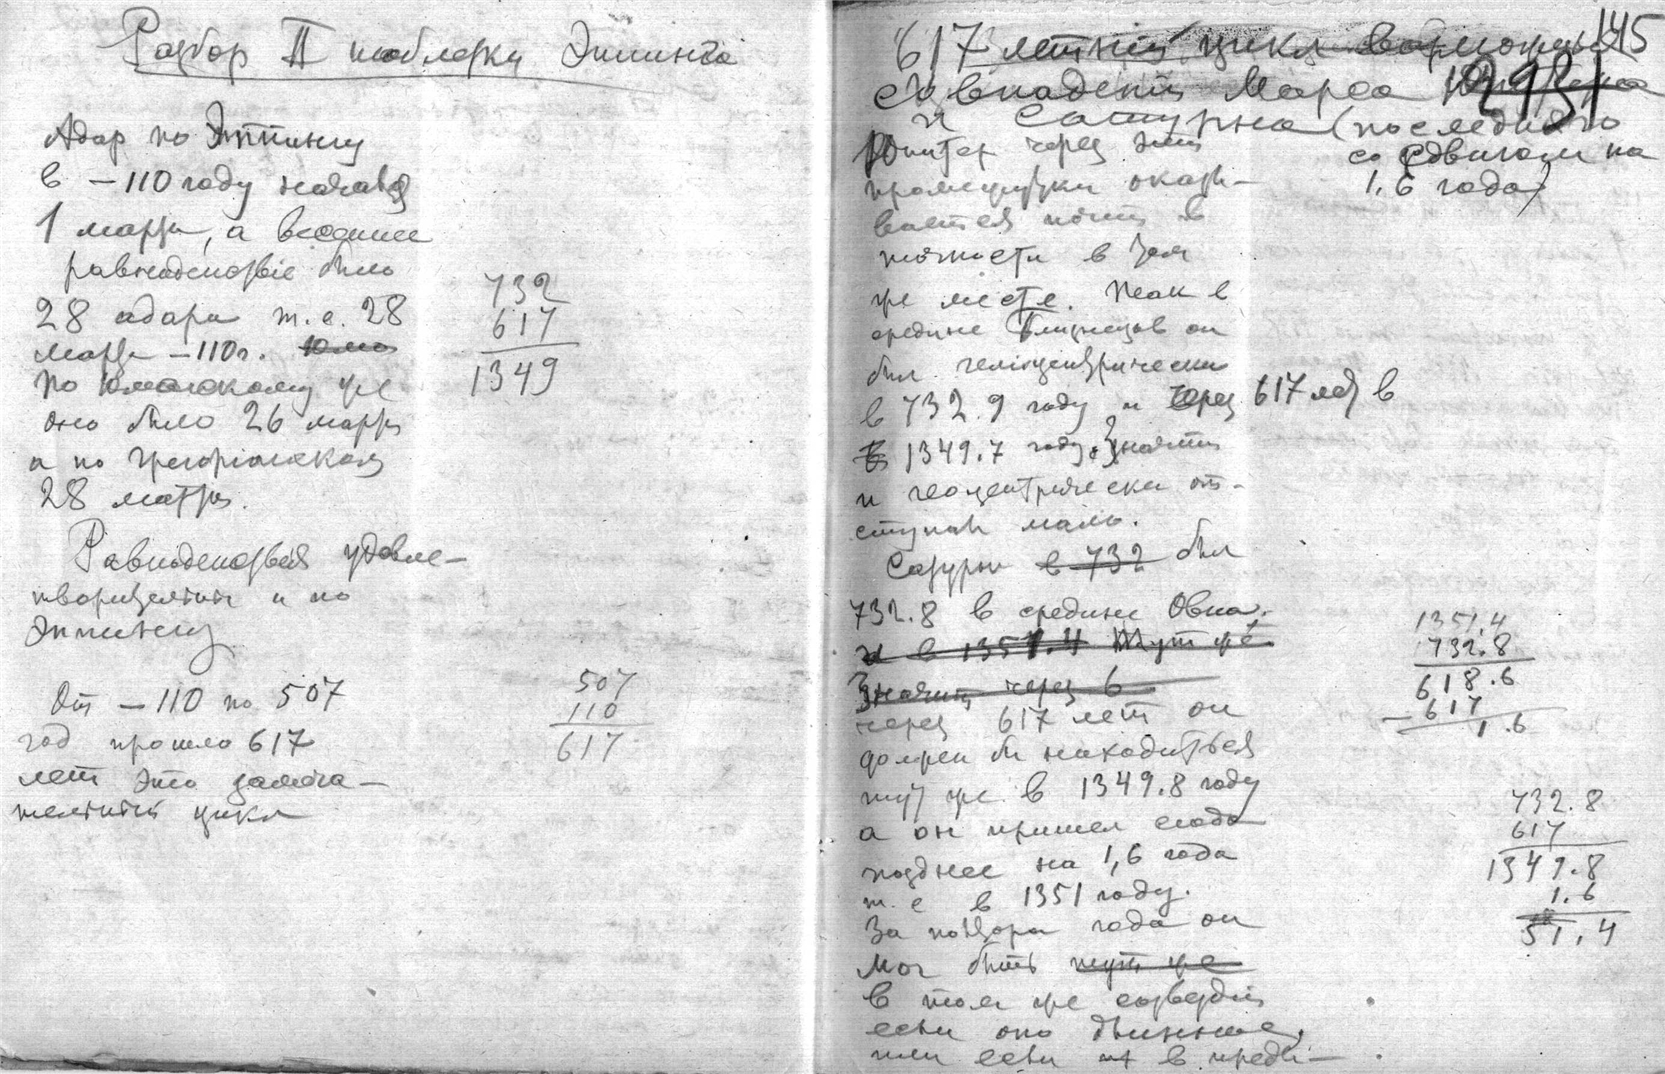 Разбор II таблетки Эппинга
Адар по Эппингу
в –110 году начался
1 марта, а весеннее
равноденствіе было
28 адара т.е. 28
марта –110 г.
По юліанскому же
оно было 26 марта
а по Грегоріанской
28 марта.
732
617
1349
Равноденствія удовле–
творительны и по
Эппингу
От –110 по 507
год прошло 617
лет это замеча–
тельный цикл
507
110
617
145
293
617 летній цикл
совпадений Марса Юпитера
и Сатурна (последнего
со сдвигом на
1.6 года)
Юпитер через эти
промежутки оказы–
вается почти в
точности в том
же месте. Так в
средине Близнецов он
был геліоцентрически
в 732.9 году и через 617 лет в
в 1349.7 году. Значит
и геоцентрически от–
ступал мало.
Сатурн в 732 был
732.8 в средине Овна.
и в 1351.4 Тут же
Значит через 6
через 617 лет он
должен бы находиться
тут же в 1349.8 году
а он пришел сюда
позднее на 1,6 года
т. е в 1351 году.
За полтора года он
мог быть тут же
в том же созвездіи
если оно длинное,
или если в преды–
1351.4
732.8
618.6
– 617
1.6
732.8
617
1349.8
1.6
51.4